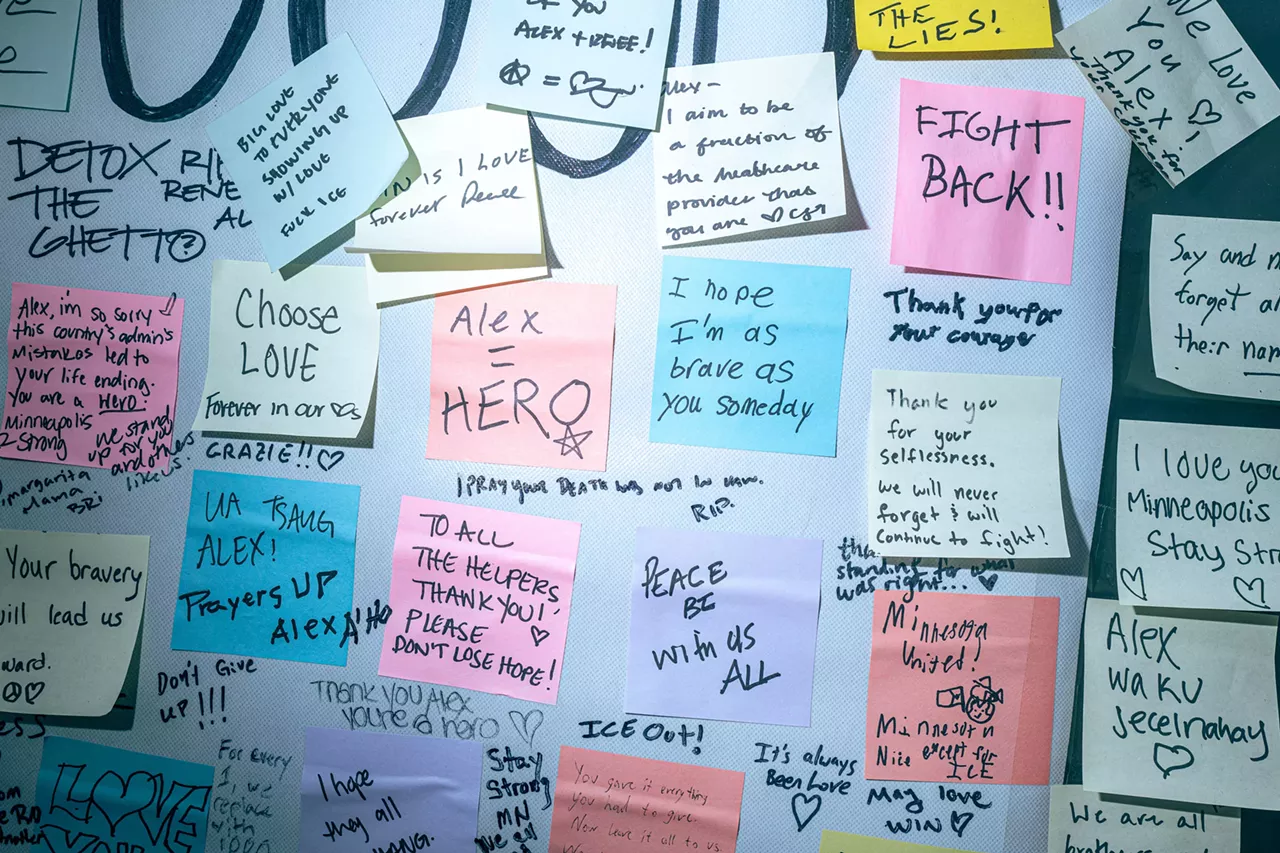 OF YOU
ALEX + RENEE!
THE
LIES!
We love
You
Alex!
Thank you for
BIG LOVE
TO EVERYONE
SHOWING UP
W/ LOVE
FUCK ICE
DETOX
THE
GHETTO
RENE
AL
IS I LOVE
forever Renee
Alex-
I aim to be
a fraction of
the healthcare
provider that
you are
FIGHT
BACK!!
Thank you for
your courage
Say and n
forget a
their nam
Alex, i'm so sorry
this country's admin's
Mistakes led to
your life ending.
You are a Hero.
Minneapolis
Strong
we stand
up for you
and others
like us.
margarita
Mama
BRI
Choose
LOVE
Forever in our ♡s
GRAZIE!! ♡
Alex
=
HERO
I hope
I'm as
brave as
you someday
I PRAY YOUR DEATH WAS NOT IN VAIN.
RIP.
Thank you
for your
selflessness.
We will never
forget & will
Continue to fight!
standing for what
was right... ♡
I love you
Minneapolis
Stay Str
Your bravery
will lead us
ward.
UA TSAUG
ALEX!
Prayers UP
Alex
Don't Give
up!!!
TO ALL
THE HELPERS
THANK YOU!
PLEASE ♡
DON'T LOSE HOPE!
THANK YOU ALEX
you're a hero ♡
PEACE
BE
with us
ALL
ICE Out!
Minnesota
United!
Minnesota
Nice except for
ICE
May love
WIN ♡
It's always
Been Love
♡
Alex
waku
jecelnahay
♡
LOVE
For every
I, we
replace
with
I hope
they all
HANG.
Stay
Strong
MN
We all
You gave it everything
you had to give.
Now leave it all to us.
We are all